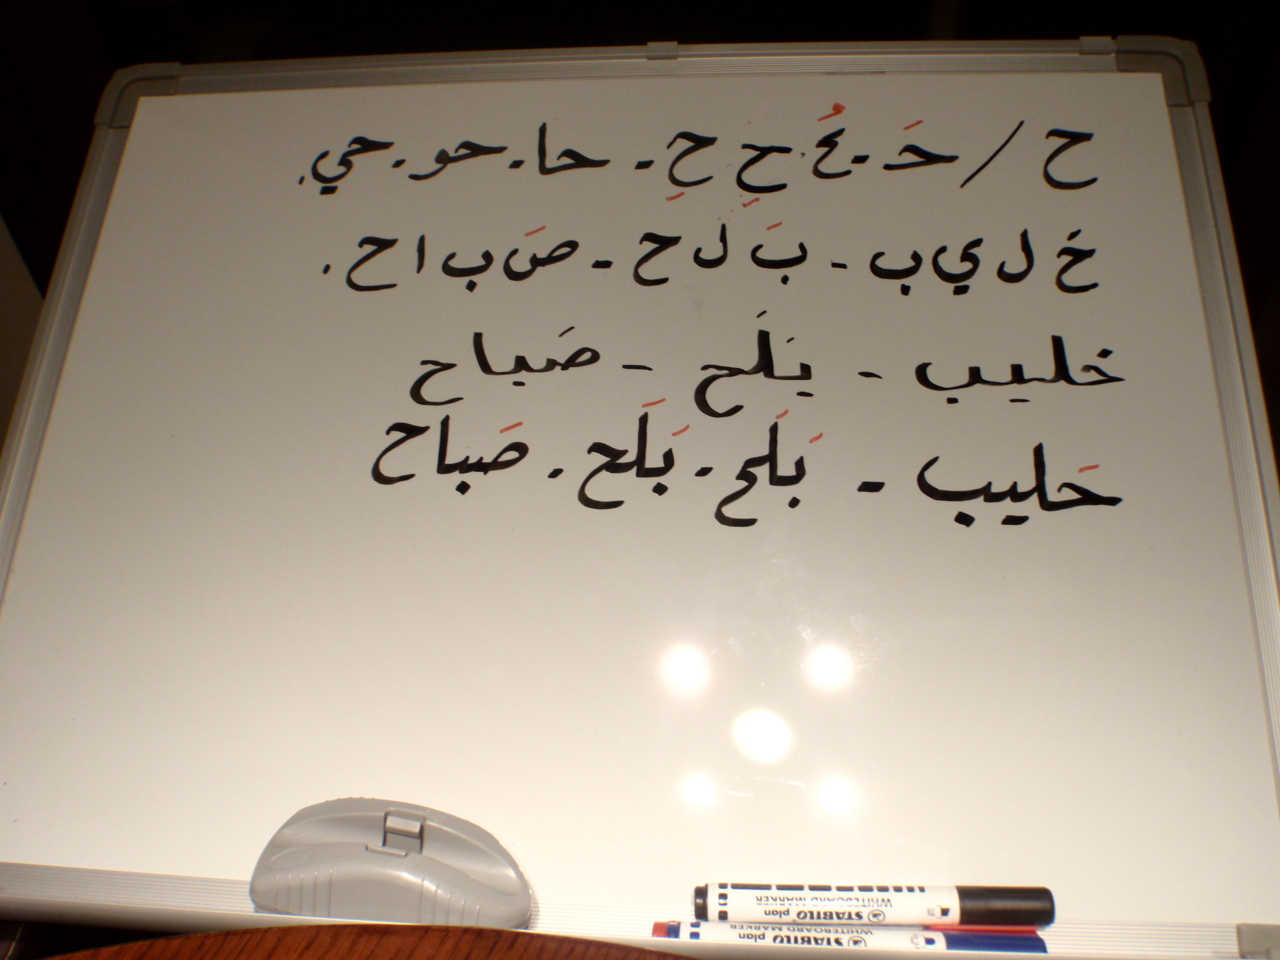 ح / حَ - حُ ح حِ - حا - حو - حي.
خ ل ي ب - بَ لَ ح - صَ ب ا ح.
خليب - بَلَح - صَباح
حَليب - بَلَح - بَلَح - صَباح
STABILO plan WHITEBOARD MARKER
STABILO plan WHITEBOARD MARKER